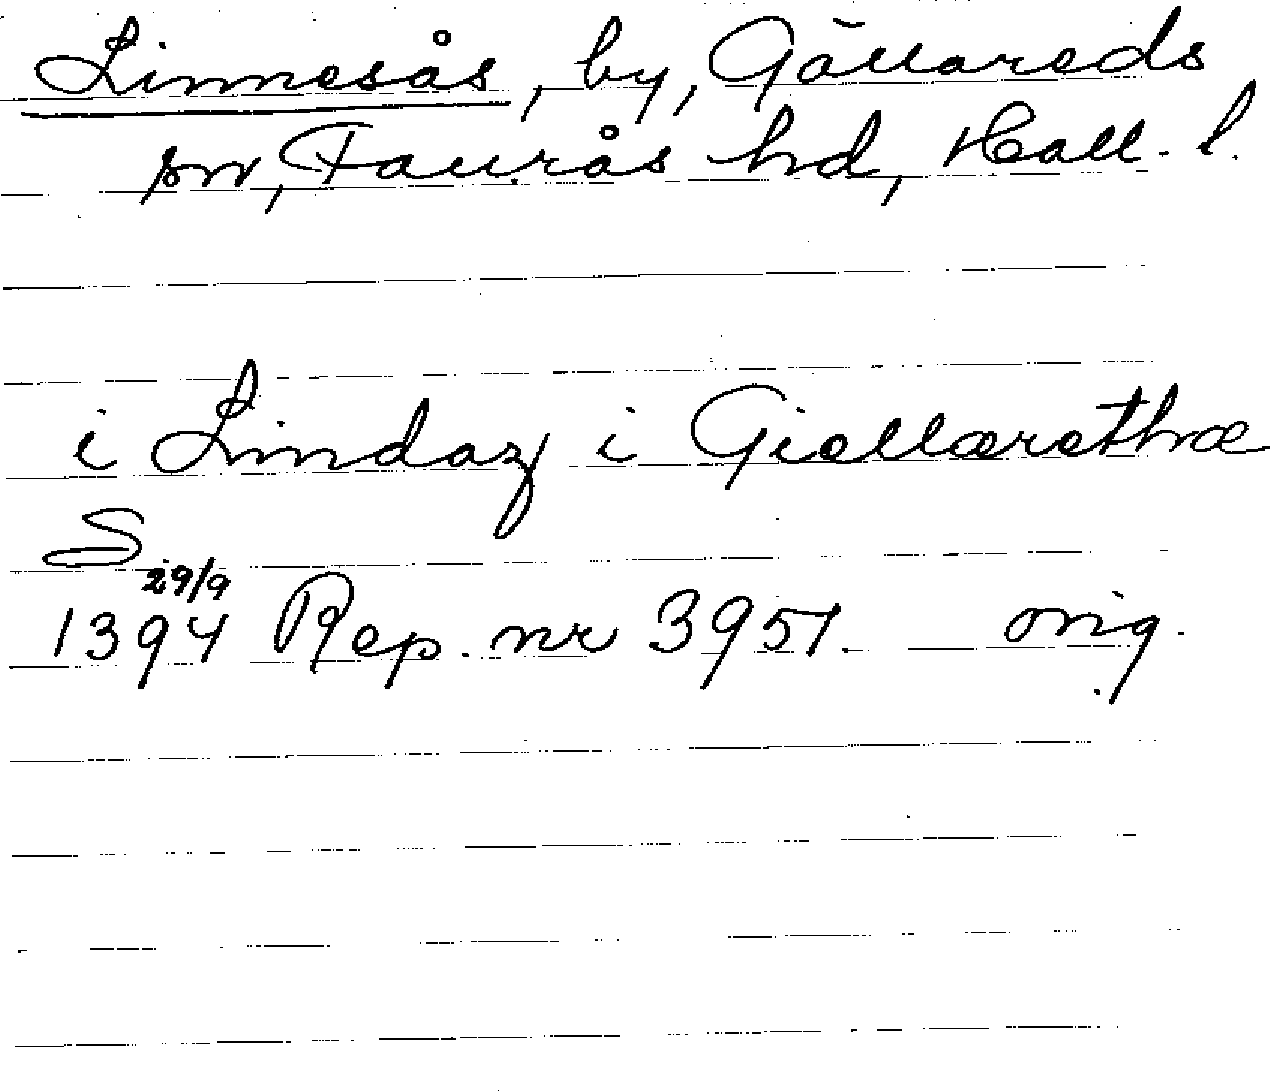 Linnesås, by, Gällareds
sn, Faurås hd, Hall. l.
i Lindaz i Giællærethræ
S
29/9
1394 Rep. nr 3951. orig.